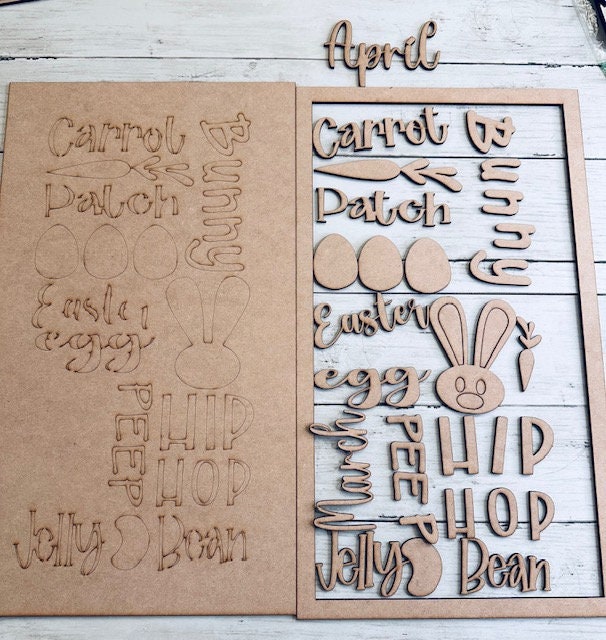 April
Carrot
Patch
Bunny
Easter
egg
PEEP
HIP
HOP
Jelly Bean
Carrot
Patch
Bunny
Easter
egg
March
PEEP
HIP
HOP
Jelly Bean